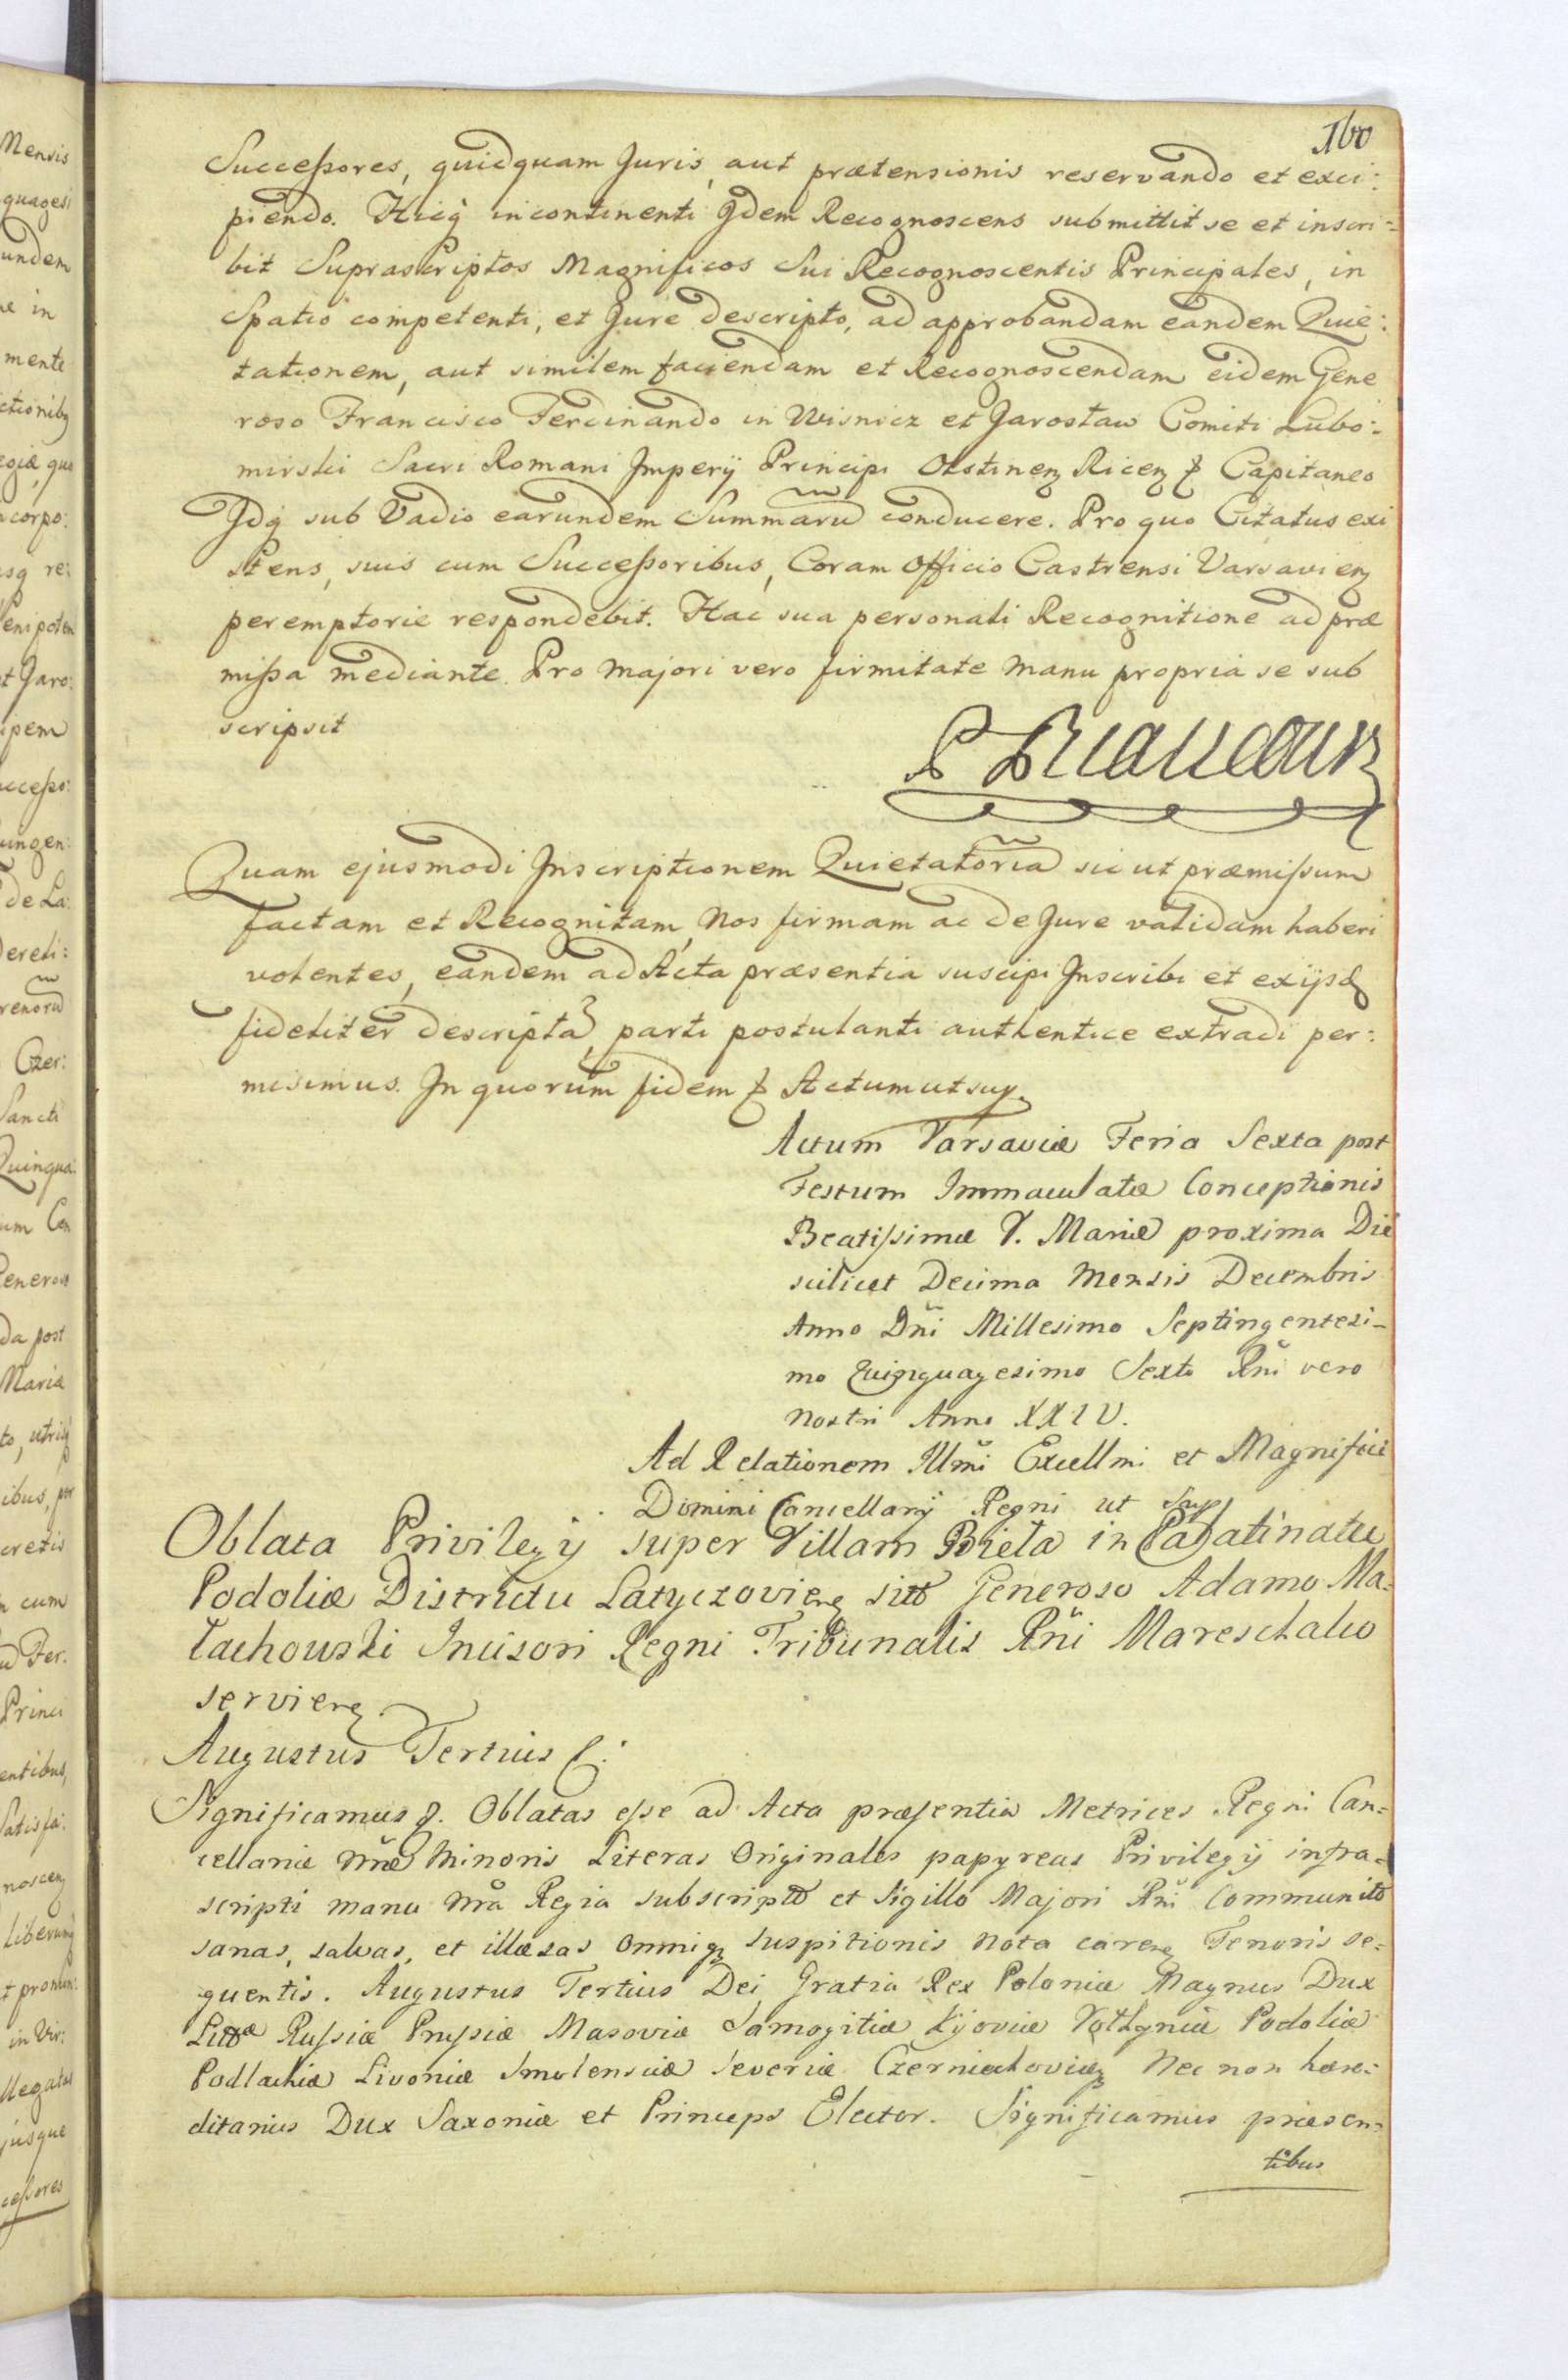 160
Successores, quidquam Juris, aut prætensionis reservando et exci:
piendo. Hicq̃ incontinenti Jdem Recognoscens submittit se et inscri=
bit Suprascriptos Magnificos Sui Recognoscentis Principales, in
Spatio competenti, et Jure descripto, ad approbandam eandem Quie:
tationem, aut similem faciendam et Recognoscendam eidem Gene
roso Francisco Ferdinando in Wisnicz et Jarosław Comiti Lubo:
mirski Sacri Romani Imperÿ Principi Olstinen Ricen & Capitaneo
Jdq̃ sub Vadio earundem Summarũ conducere. Pro quo Citatus exi
stens, suis cum Successoribus, Coram Officio Castrensi Varsavien
peremptorie respondebit. Hac sua personali Recognitione ad præ
missa mediante. Pro majori vero firmitate manu propria se sub
scripsit
Quam ejusmodi Inscriptionem Quietatoriã sic ut præmissum
factam et Recognitam, Nos firmam ac de Jure validam haberi
volentes, eandem ad Acta præsentia suscipi Inscribi et exijsd
fideliter descriptã, parti postulanti authentice extradi per:
misimus. In quorum fidem & Actum ut sup.
Actum Varsaviæ Feria Sexta post
Festum Immaculatæ Conceptionis
Beatissimæ V. Mariæ proxima Die
scilicet Decima Mensis Decembris
Anno Dñi Millesimo Septingentesi-
mo Quinquagesimo Sexto Rñi vero
Nostri Anno XXIV.
Ad Relationem Illmi Excellmi et Magnifici
Domini Cancellarÿ Regni ut Sup
Oblata Privilegÿ super Villam Bieła in Palatinatu
Podoliæ Districtu Latyczovien sitõ Generoso Adamo Ma=
łachowski Incisori Regni Tribunalis Rñi Mareschalco
servien
Augustus Tertius &:
Significamus &. Oblatas esse ad Acta præsentia Metrices Regni Can=
cellariæ Nræ Minoris Literas Originales papyreas Privilegÿ infra=
scripti manu Nrã Regia subscriptõ et Sigillo Majori Rñi Communitõ
sanas, salvas, et illæsas omniq suspitionis nota caren Tenoris se=
quentis. Augustus Tertius Dei Gratia Rex Poloniæ Magnus Dux
Littæ Russiæ Prussiæ Masoviæ Samogitiæ Kijoviæ Volhyniæ Podoliæ
Podlachiæ Livoniæ Smolensciæ Severiæ Czerniechoviæq Nec non hære=
ditarius Dux Saxoniæ et Princeps Elector. Significamus præsen=
tibus